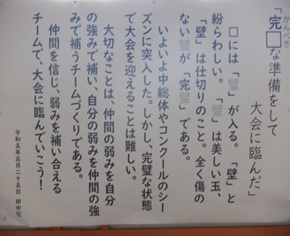 かんぺき
「完□な準備をして
大会に臨んだ」
□には「璧」が入る。「壁」と
紛らわしい。「璧」は美しい玉、
「壁」は仕切りのこと。全く傷の
ない璧が「完璧」である。
いよいよ中総体やコンクールのシー
ズンに突入した。しかし、完璧な状態
で大会を迎えることは難しい。
大切なことは、仲間の弱みを自分
の強みで補い、自分の弱みを仲間の強
みで補うチームづくりである。
仲間を信じ、弱みを補い合える
チームで、大会に臨んでいこう！
令和五年五月二十五日 田中宅